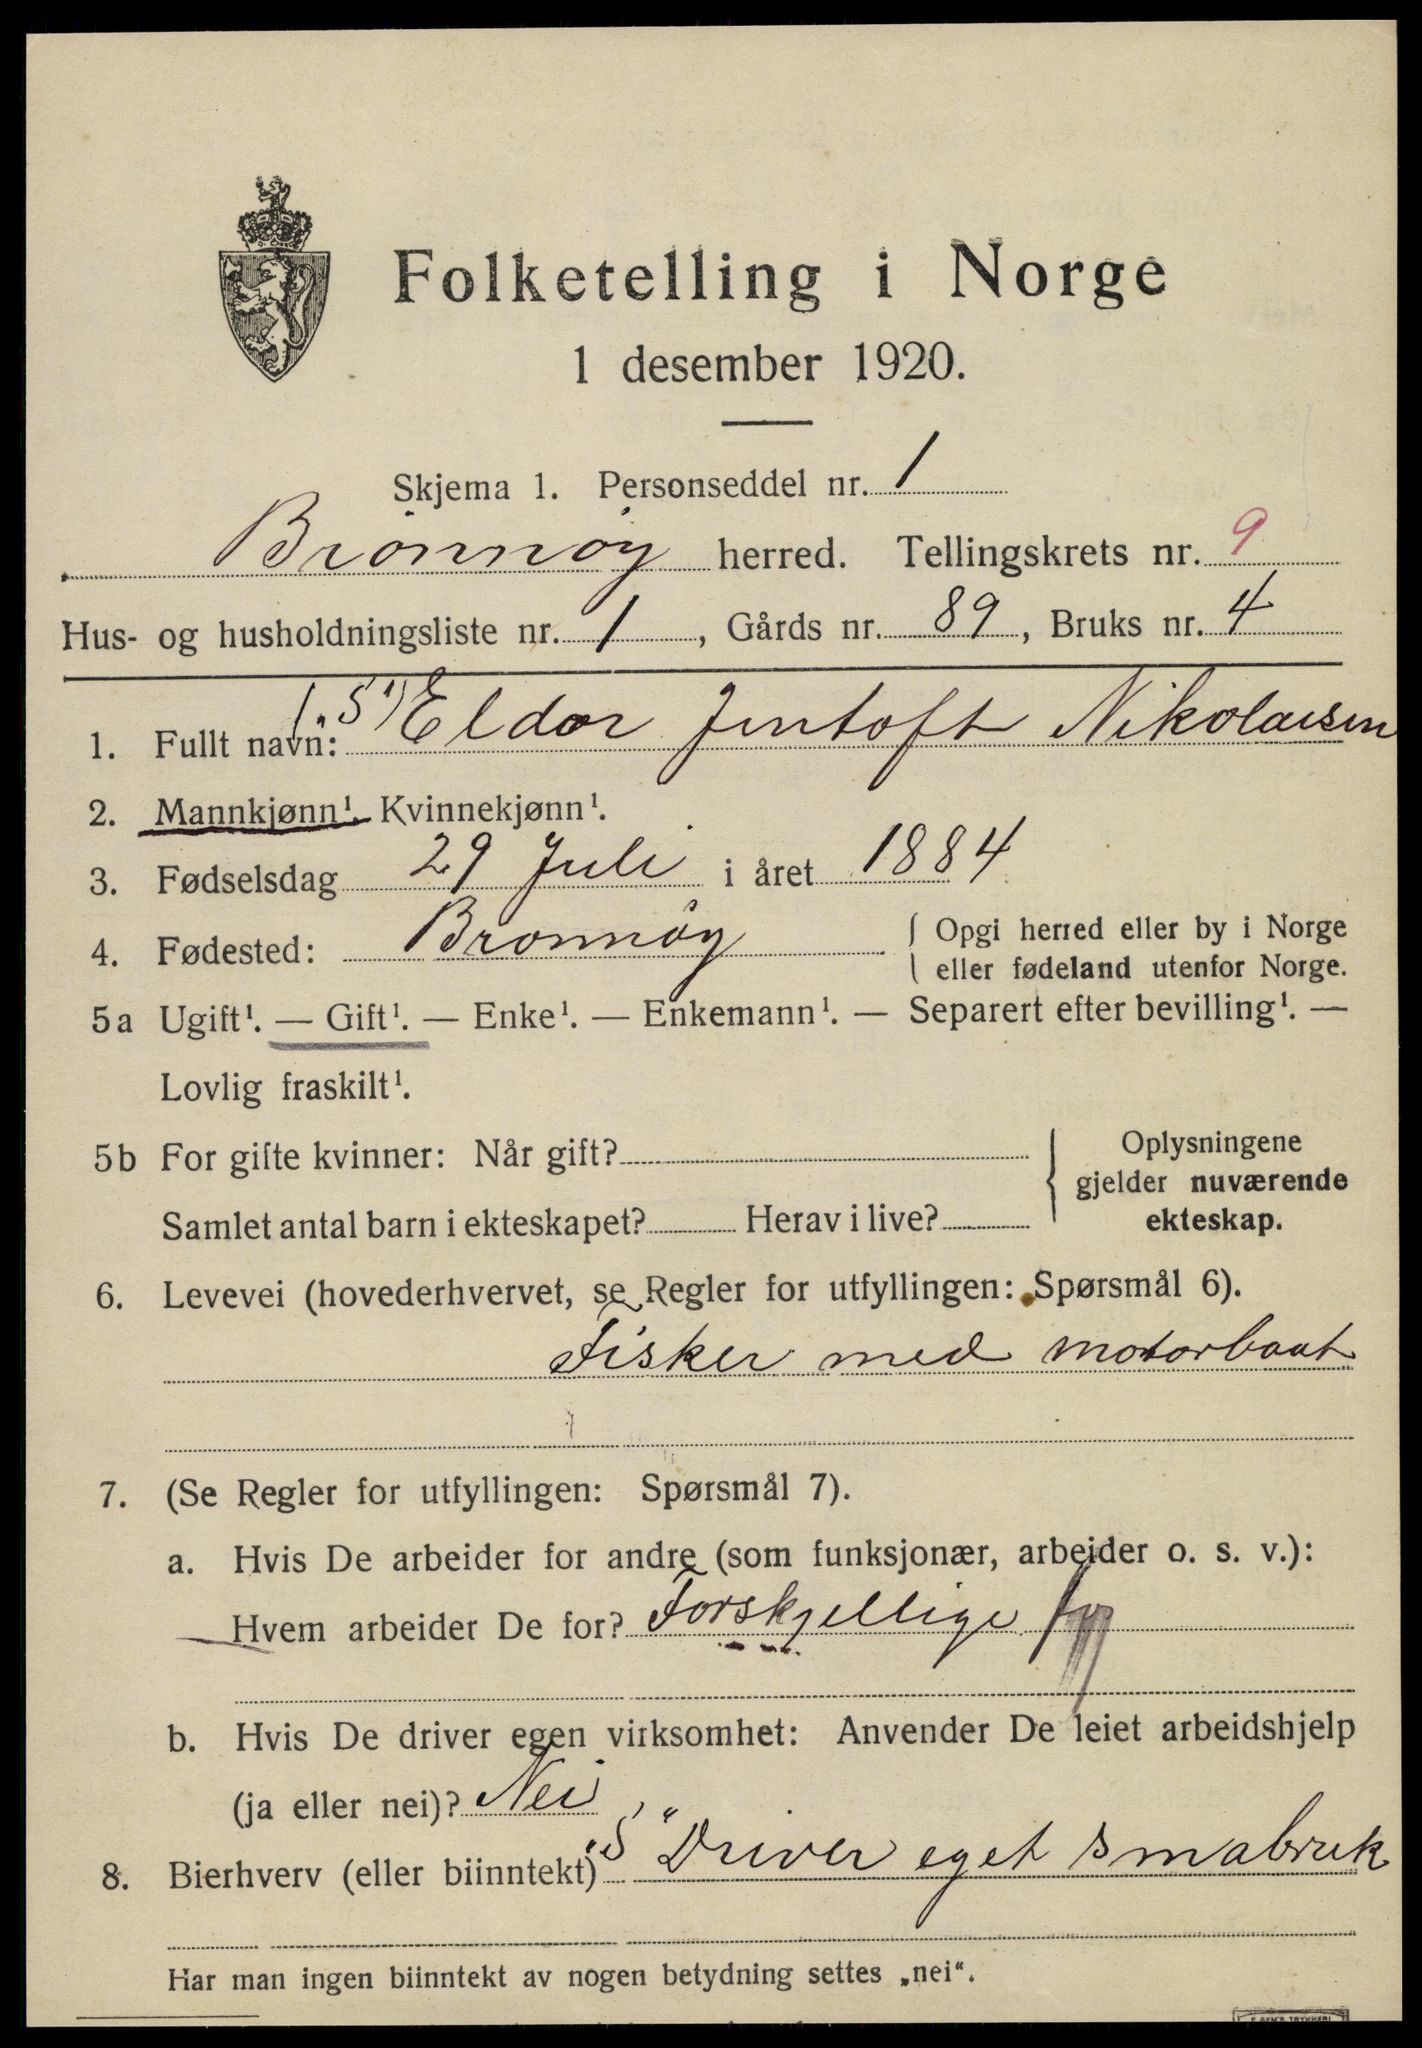 Folketelling i Norge
1 desember 1920.
Skjema 1. Personseddel nr. 1
Brönnöy herred. Tellingskrets nr. 9
Hus- og husholdningsliste nr. 1, Gårds nr. 89, Bruks nr. 4
1. Fullt navn: Eldor Jentoft Nikolaisen
2. Mannkjønn¹. Kvinnekjønn¹.
3. Fødselsdag 29 Juli i året 1884
4. Fødested: Bronnöy { Opgi herred eller by i Norge
eller fødeland utenfor Norge.
5a Ugift¹. — Gift¹. — Enke¹. — Enkemann¹. — Separert efter bevilling¹. —
Lovlig fraskilt¹.
5b For gifte kvinner: Når gift? { Oplysningene
gjelder nuværende
Samlet antal barn i ekteskapet? Herav i live? ekteskap.
6. Levevei (hovederhvervet, se Regler for utfyllingen: Spørsmål 6).
Fisker med motorbaat
7. (Se Regler for utfyllingen: Spørsmål 7).
a. Hvis De arbeider for andre (som funksjonær, arbeider o. s. v.):
Hvem arbeider De for? Forskjellige
b. Hvis De driver egen virksomhet: Anvender De leiet arbeidshjelp
(ja eller nei)? Nei
8. Bierhverv (eller biinntekt) "S" Driver eget smabruk
Har man ingen biinntekt av nogen betydning settes „nei“.